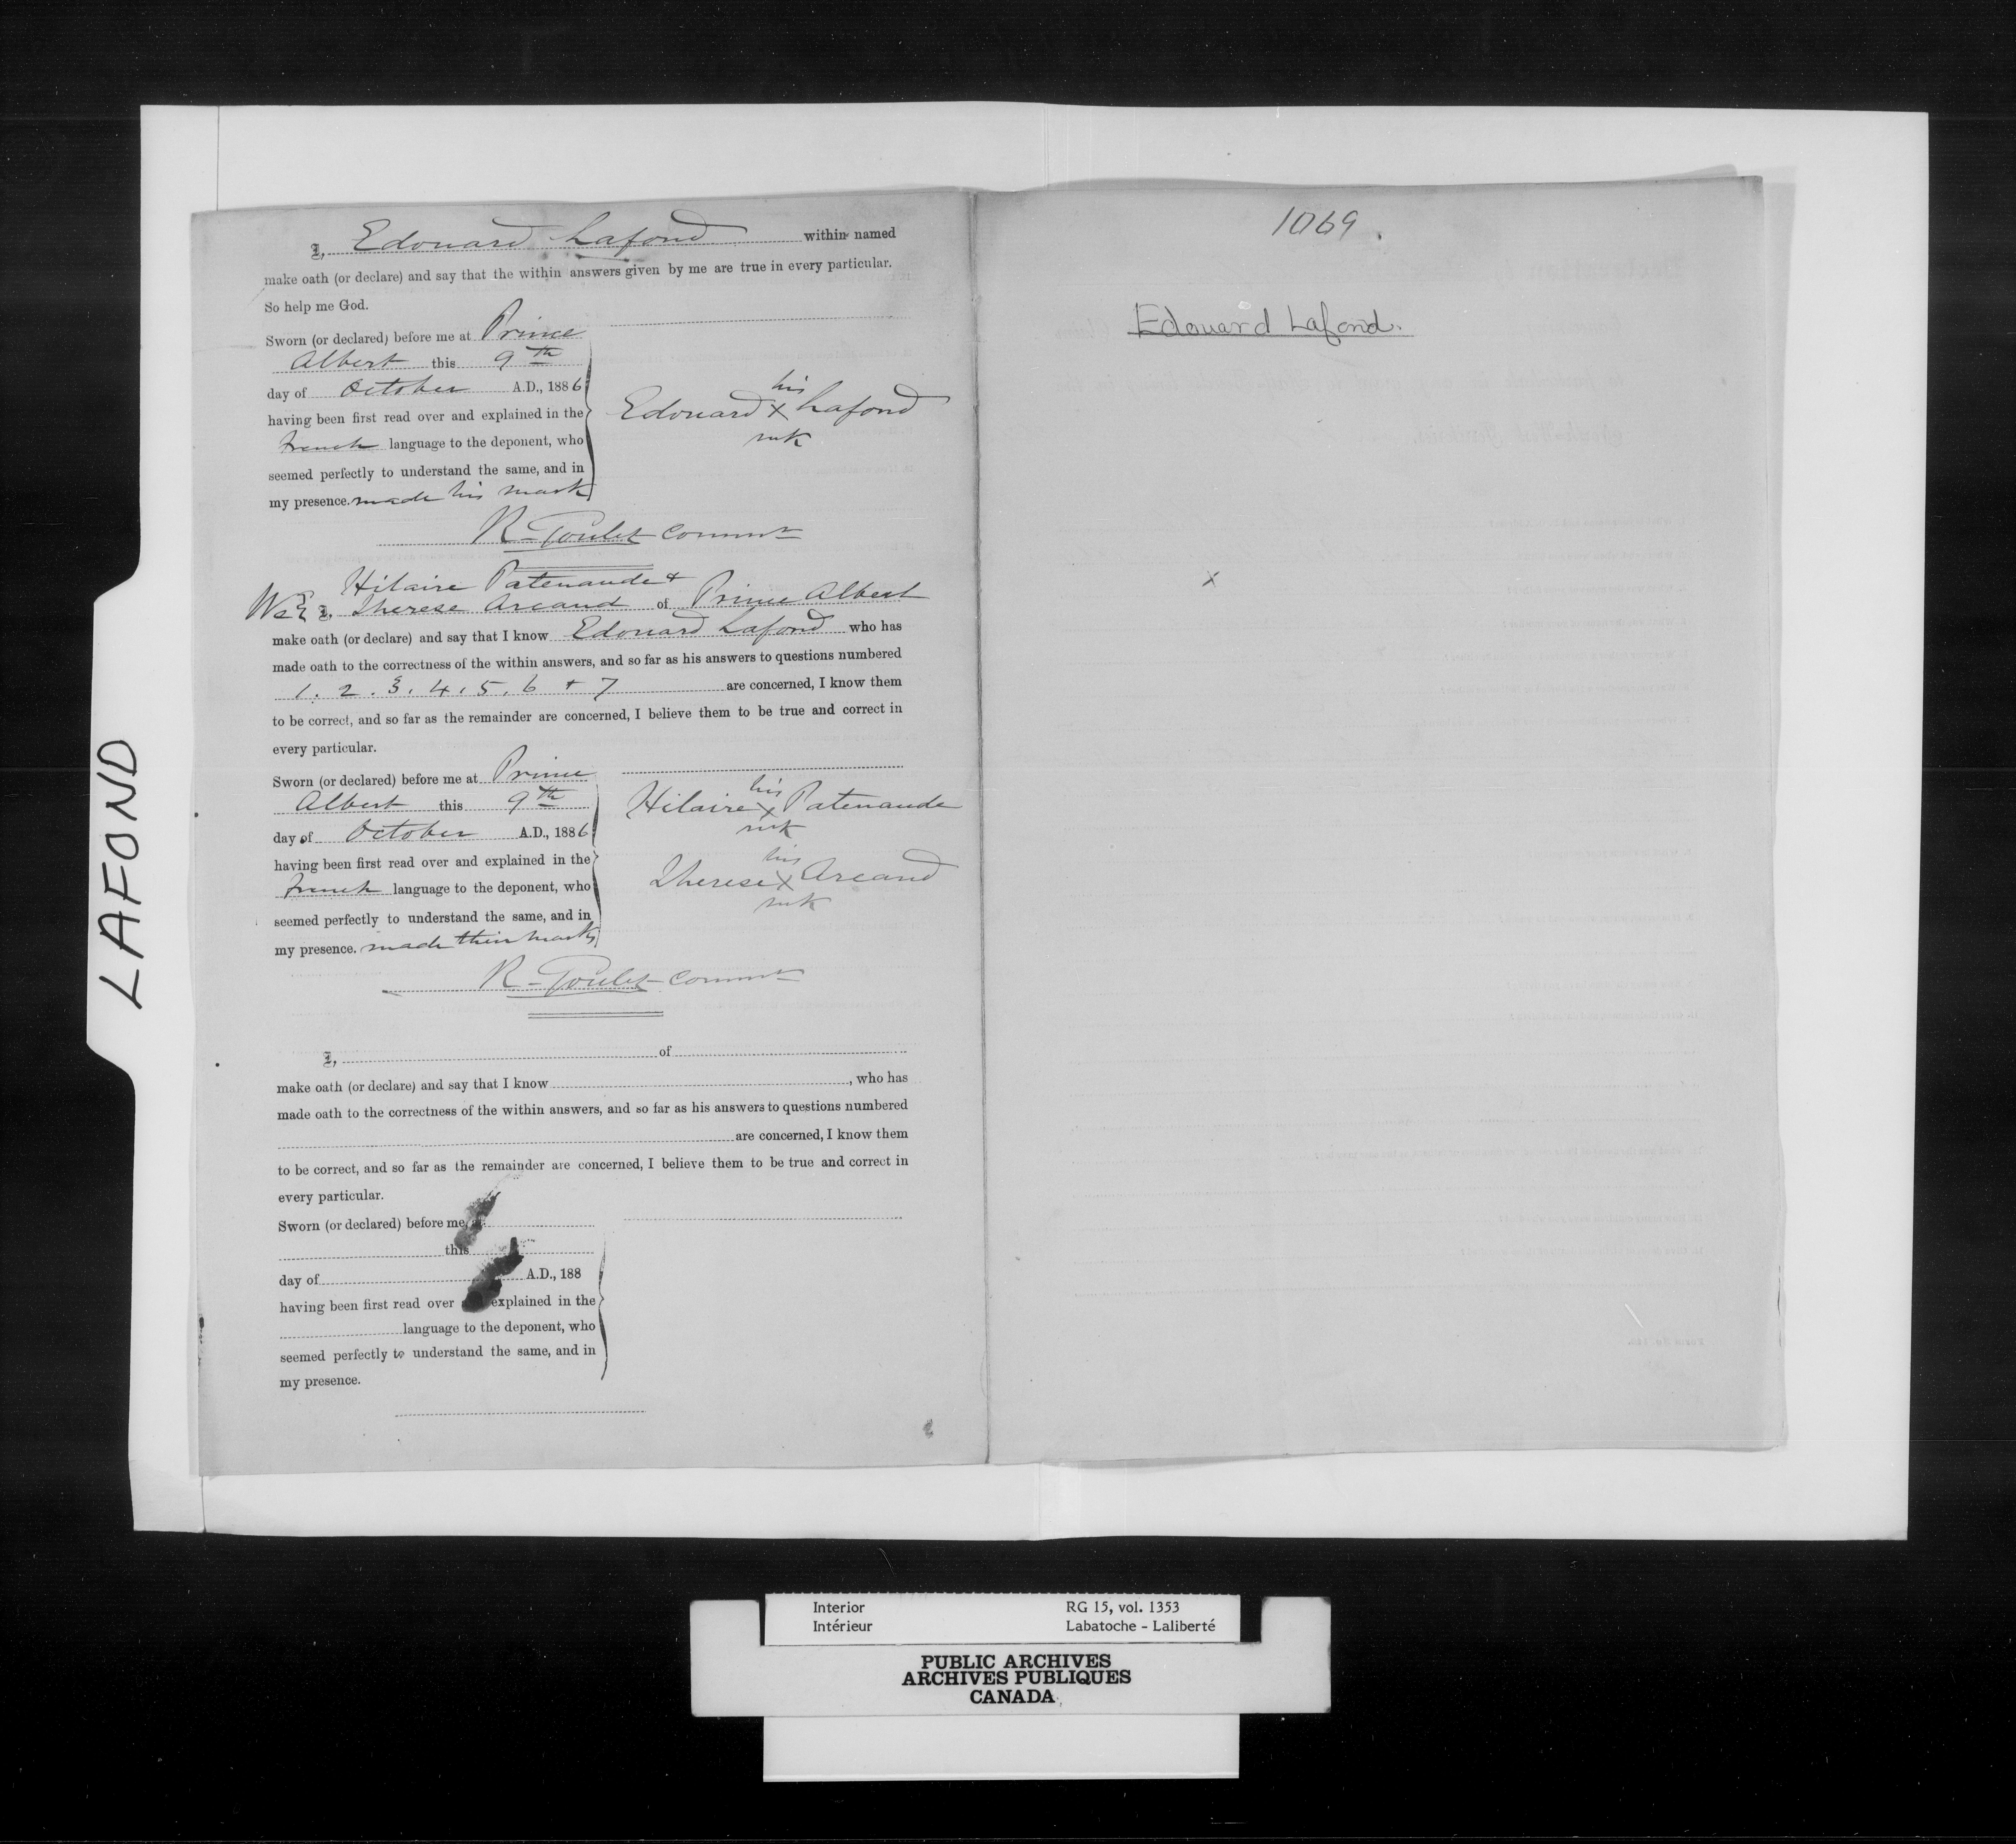 I, Edouard Lafond within named
make oath (or declare) and say that the within answers given by me are true in every particular.
So help me God.
Sworn (or declared) before me at Prince
Albert this 9th
day of October A.D., 1886
having been first read over and explained in the
french language to the deponent, who
seemed perfectly to understand the same, and in
my presence. made his mark
his
Edouard x Lafond
mk
R. Goulet Commr
Hilaire Patenaude +
We I, Therese Arcand of Prince Albert
make oath (or declare) and say that I know Edouard Lafond who has
made oath to the correctness of the within answers, and so far as his answers to questions numbered
1. 2. 3. 4. 5. 6 + 7 are concerned, I know them
to be correct, and so far as the remainder are concerned, I believe them to be true and correct in
every particular.
Sworn (or declared) before me at Prince
Albert this 9th
day of October A.D., 1886
having been first read over and explained in the
french language to the deponent, who
seemed perfectly to understand the same, and in
my presence. made their marks
his
Hilaire x Patenaude
mk
his
Therese x Arcand
mk
R. Goulet Commr
I, of
make oath (or declare) and say that I know , who has
made oath to the correctness of the within answers, and so far as his answers to questions numbered
are concerned, I know them
to be correct, and so far as the remainder are concerned, I believe them to be true and correct in
every particular.
Sworn (or declared) before me
this
day of A.D., 188
having been first read over explained in the
language to the deponent, who
seemed perfectly to understand the same, and in
my presence.
1069.
Edouard Lafond.
x
LAFOND
Interior RG 15, vol. 1353
Intérieur Labatoche - Laliberté
PUBLIC ARCHIVES
ARCHIVES PUBLIQUES
CANADA